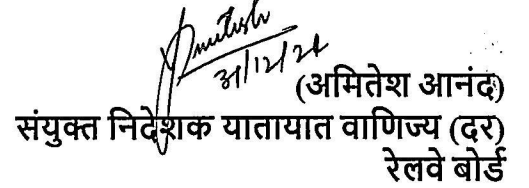 31/12/24
(अमितेश आनंद)
संयुक्त निदेशक यातायात वाणिज्य (दर)
रेलवे बोर्ड